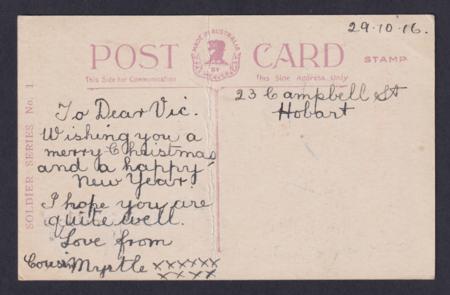 29.10.16.
MADE IN AUSTRALIA
POST CARD
BY
STAMP
This Side for Communication This Side Address Only
SOLDIER SERIES No. 1
23 Campbell St
Hobart
To Dear Vic.
Wishing you a
merry Christmas
and a happy
New Year.
I hope you are
quite well.
Love from
Cousin Myrtle xxxxxx
xxxx